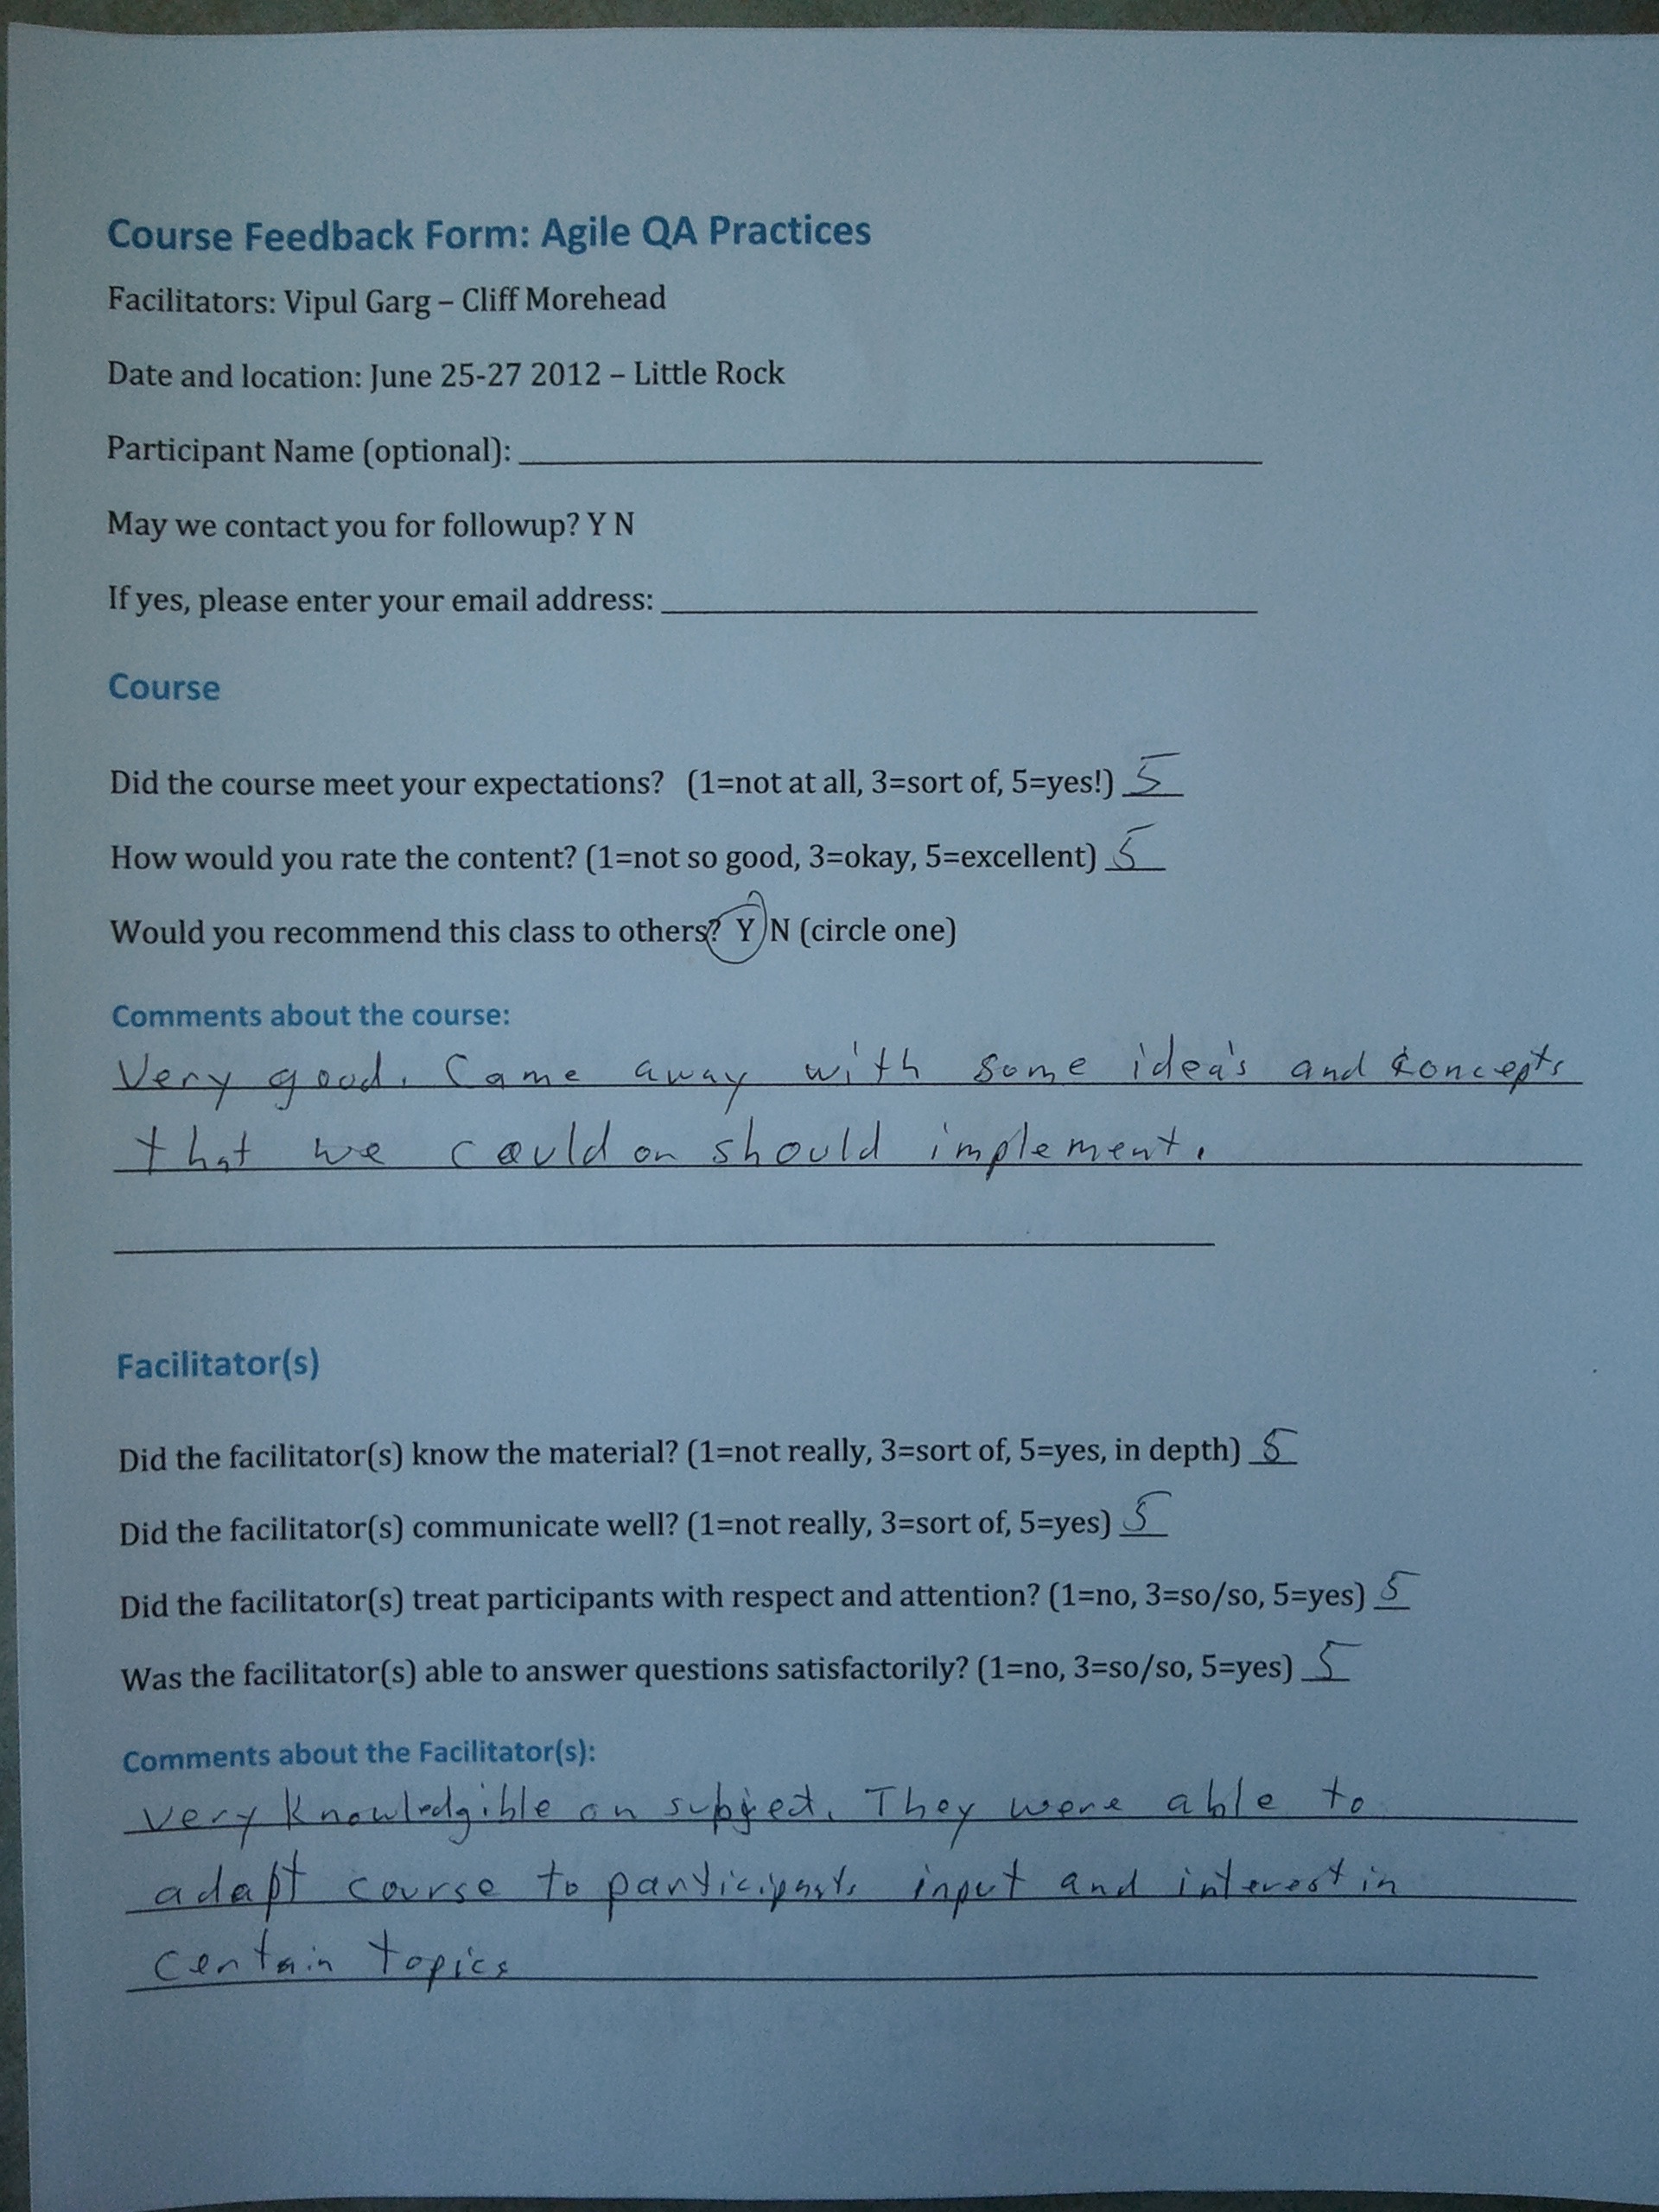 Course Feedback Form: Agile QA Practices
Facilitators: Vipul Garg – Cliff Morehead
Date and location: June 25-27 2012 – Little Rock
Participant Name (optional):
May we contact you for followup? Y N
If yes, please enter your email address:
Course
Did the course meet your expectations? (1=not at all, 3=sort of, 5=yes!) 5
How would you rate the content? (1=not so good, 3=okay, 5=excellent) 5
Would you recommend this class to others? Y N (circle one)
Comments about the course:
Very good. Came away with some idea's and concepts
that we could or should implement.
Facilitator(s)
Did the facilitator(s) know the material? (1=not really, 3=sort of, 5=yes, in depth) 5
Did the facilitator(s) communicate well? (1=not really, 3=sort of, 5=yes) 5
Did the facilitator(s) treat participants with respect and attention? (1=no, 3=so/so, 5=yes) 5
Was the facilitator(s) able to answer questions satisfactorily? (1=no, 3=so/so, 5=yes) 5
Comments about the Facilitator(s):
very knowledgible on subject. They were able to
adapt course to participants input and interest in
certain topics